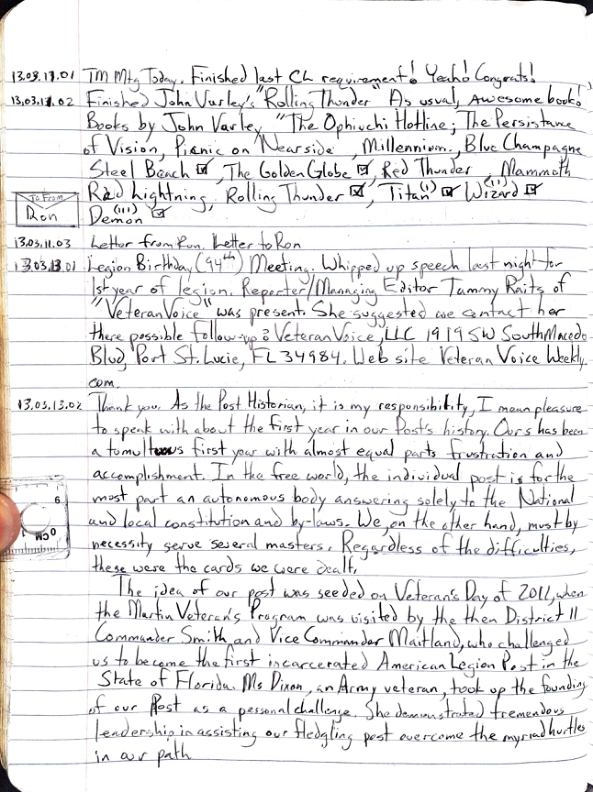 13.03.11.01 TM Mtg Today. Finished last CL requirement! Yeah! Congrats!
13.03.11.02 Finished John Varley's "Rolling Thunder" As usual, awesome book!
Books by John Varley "The Ophiuchi Hotline; The Persistance
of Vision, Picnic on Nearside, Millennium, Blue Champagne
Steel Beach ☑, The Golden Globe ☑, Red Thunder, Mammoth
Red Lightning, Rolling Thunder ☑, Titan(I) ☑ Wizard(II) ☑
To From
Ron
Demon(III) ☑
13.03.11.03 Letter from Ron. Letter to Ron
13.03.13.01 Legion Birthday (94th) Meeting. Whipped up speech last night for
1st year of legion. Reporter/Managing Editor Tammy Raits of
"Veteran Voice" was present. She suggested we contact her
there possible follow-up? Veteran Voice, LLC 1919 SW South Macedo
Blvd, Port St. Lucie, FL 34984. Web site Veteran Voice Weekly.
com.
13.03.13.02 Thank you. As the Post Historian, it is my responsibility, I mean pleasure
to speak with about the first year in our Posts history. Ours has been
a tomultuous first year with almost equal parts frustration and
accomplishment. In the free world, the individual post is for the
most part an autonomous body answering solely to the National
and local constitution and by-laws. We, on the other hand, must by
necessity serve several masters. Regardless of the difficulties,
these were the cards we were dealt.
The idea of our post was seeded on Veteran's Day of 2011, when
the Martin Veteran's Program was visited by the then District 11
Commander Smith and Vice Commander Maitland, who challenged
us to become the first incarcerated American Legion Post in the
State of Florida. Ms Dixon, an Army veteran, took up the founding
of our Post as a personal challenge. She demonstrated tremendous
leadership in assisting our fledgling post overcome the myriad hurtles
in our path
9
0CM 1